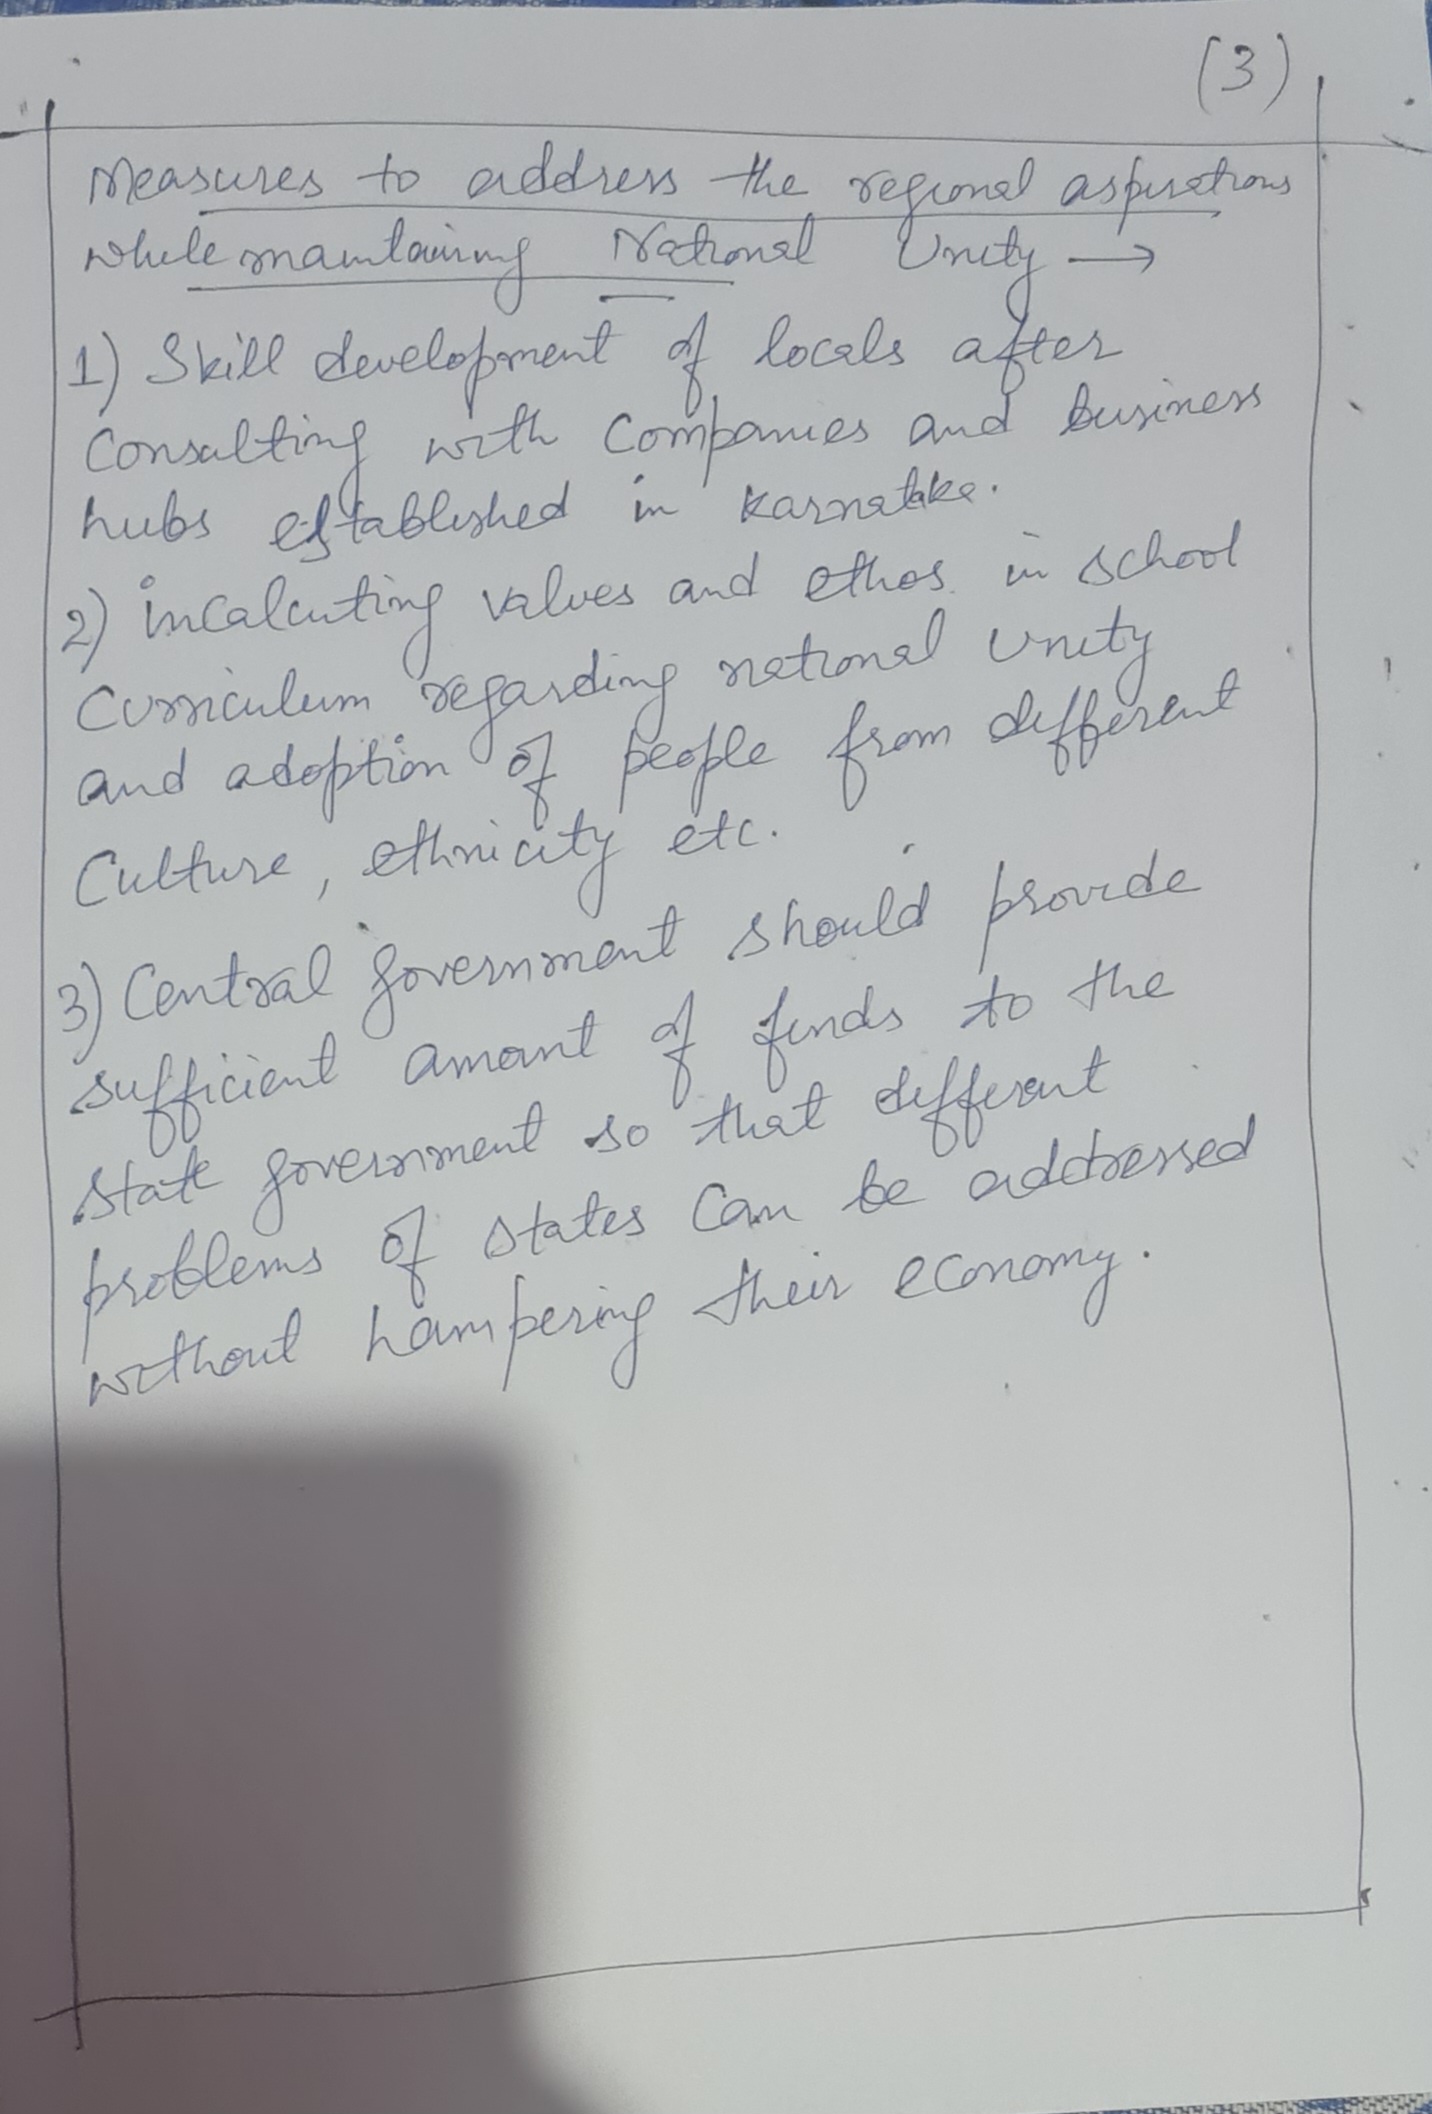 (3)
Measures to address the regional aspirations
while maintaining National Unity →
1) Skill development of locals after
Consulting with Companies and business
hubs established in Karnataka.
2) incalcuting values and ethos in school
Curriculum regarding national unity
and adoption of people from different
Culture, ethnicity etc.
3) Central government should provide
sufficient amount of funds to the
state government so that different
problems of states can be addressed
without hampering their economy.